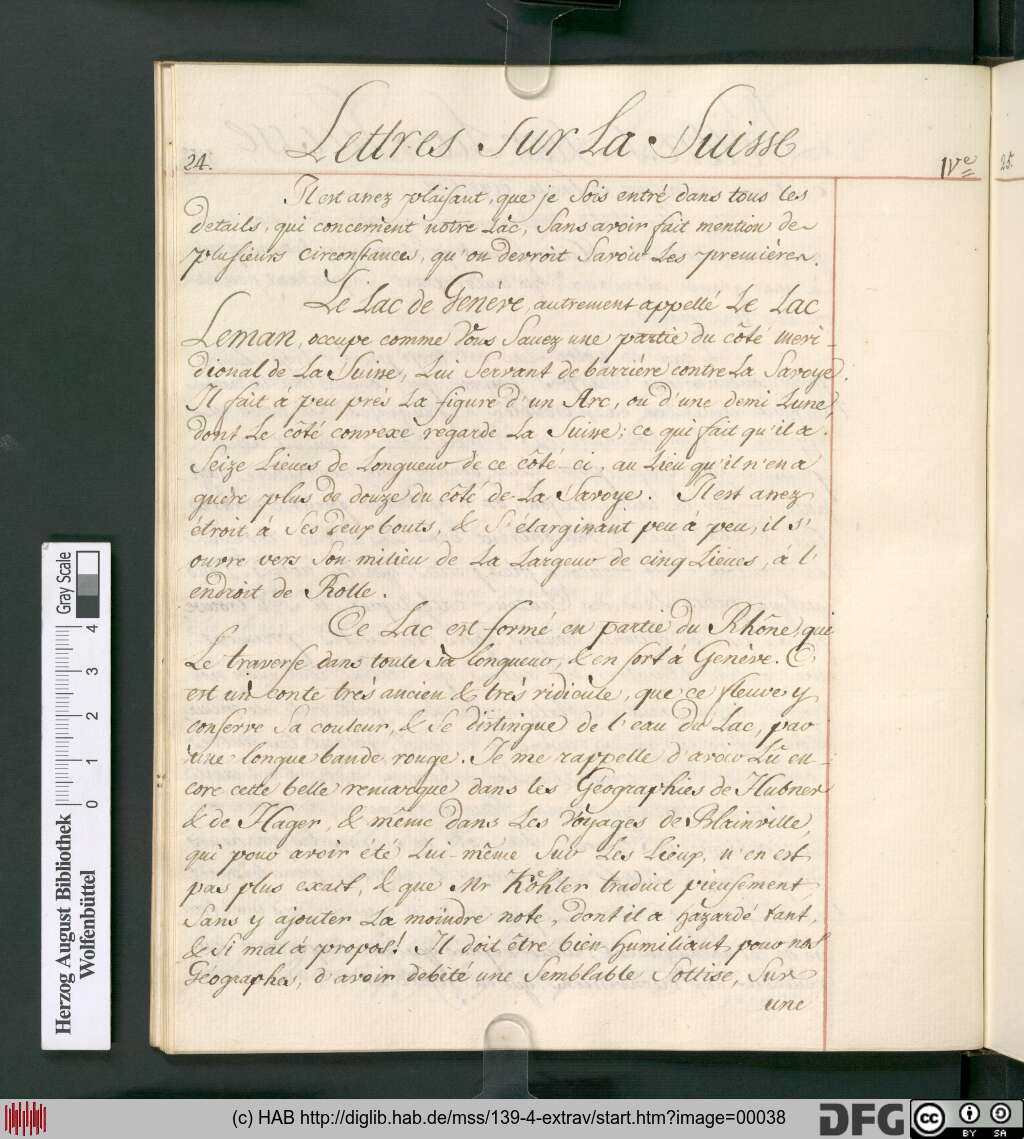 Lettres sur La Suisse
24.
IVe
25.
Il est assez plaisant, que je sois entré dans tous les
details, qui concernent notre Lac, Sans avoir fait mention de
plusieurs circonstances, qu'on devroit Savoir Les premières.
Le Lac de Genève, autrement appellé Le Lac
Leman, occupe comme Vous Savez une partie du côté meri-
dional de La Suisse, Lui Servant de barrière contre La Savoye.
Il fait à peu près La figure d'un Arc, ou d'une demi Lune,
dont Le côté convexe regarde La Suisse; ce qui fait qu'il a
Seize Lieues de Longueur de ce côté-ci, au Lieu qu'il n'en a
guère plus de douze du côté de La Savoye. Il est assez
étroit à Ses deux bouts, & S'élargissant peu à peu, il s'
ouvre vers Son milieu de La Largeur de cinq Lieues, à l'
endroit de Rolle.
Ce Lac est formé en partie du Rhône, qui
Le traverse dans toute sa longueur, & en sort à Genève. C'
est un conte très ancien & très ridicule, que ce fleuve y
conserve Sa couleur, & Se distingue de l'eau du Lac, par
une longue bande rouge. Je me rappelle d'avoir Lû en-
core cette belle remarque dans les Géographies de Hubner
& de Hager, & même dans Les Voyages de Blainville,
qui pour avoir été Lui-même Sur Les Lieux, n'en est
pas plus exact, & que Mr Köhler traduit pieusement
Sans y ajouter La moindre note, dont il a hazardé tant,
& Si mal à propos! Il doit être bien humiliant pour nos
Géographes, d'avoir debité une Semblable Sottise, Sur
une
Gray Scale
4
3
2
1
0
Herzog August Bibliothek
Wolfenbüttel
(c) HAB http://diglib.hab.de/mss/139-4-extrav/start.htm?image=00038
DFG
cc
BY SA